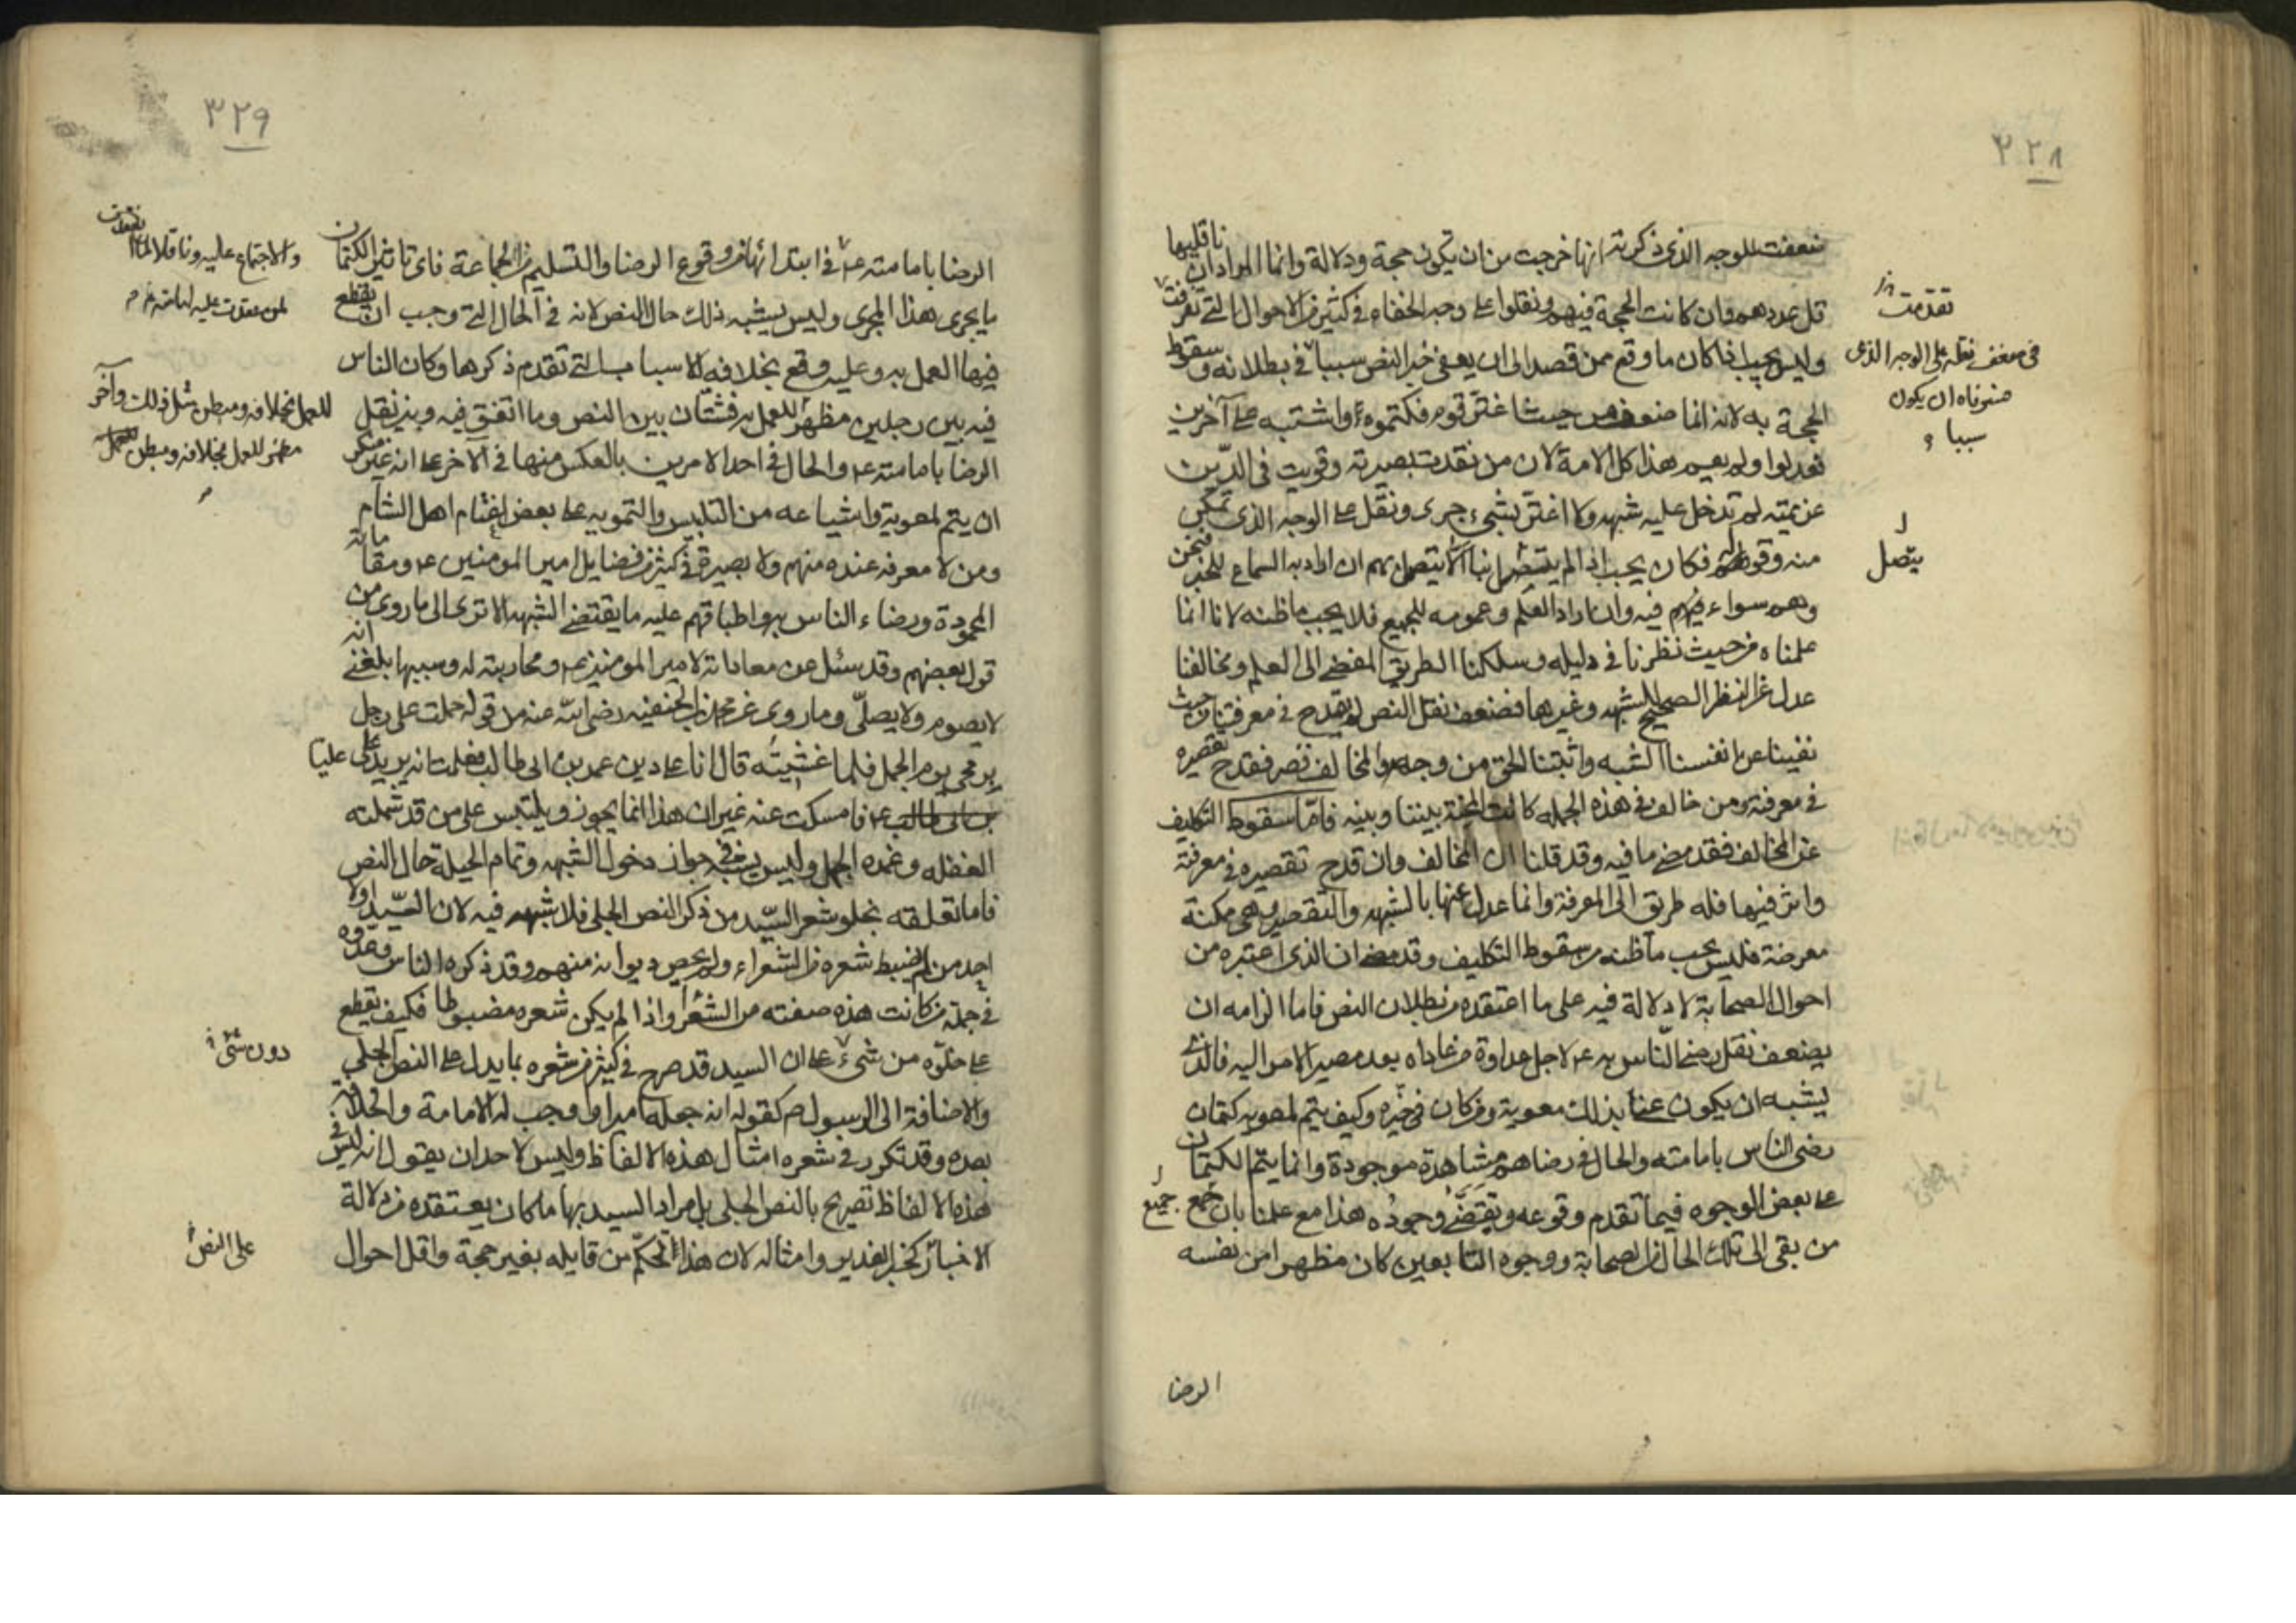 ٣٢٨
ضعفت للوجه الذى ذكرته انها خرجت من ان يكون حجة ودلالة وانما المراد ان ناقليها
قل عددهم وان كانت الحجة فيهم ونقلوا على وجه الخفاء فى كثير من الاحوال التى تفرقت
وليس يجب اذا كان ما وقع ممن قصد الى ان يعفى خبر النص سببا فى بطلانه وسقوط
الحجة به لانه انما ضعف من حيث اغتر قوم فكتموه واشتبه على آخرين
فعدلوا ولم يعم هذا كل الامة لان من نفدت بصيرته وقويت فى الدين
عزيمته لم تدخل عليه شبهه ولا اغتر بشىء جرى ونقل على الوجه الذى تمكن
منه وقوله فكان يجب اذا لم يتصل بنا الا يتصل بهم ان اراد به السماع للخبر فنحن
وهم سواء فيه وان اراد العلم وعمومه للجميع فلا يجب ما ظنه لانا انما
علمناه من حيث نظرنا فى دليله وسلكنا الطريق المفضى الى العلم ومخالفنا
عدل عن النظر الصحيح للشبهه وغيرها فضعف نقل النص لم يقدح فى معرفتنا من حيث
نفينا عن انفسنا الشبه واثبتنا الحق من وجهه والمخالف قصر فقدح تقصيره
فى معرفته ومن خالف فى هذه الجمله كانت المحنة بيننا وبينه فاما سقوط التكليف
عن المخالف فقد مضى ما فيه وقد قلنا ان المخالف وان قدح تقصيره فى معرفته
واثر فيها فله طريق الى المعرفة وانما عدل عنها بالشبهه والتقصير وهى ممكنة
معرضة فليس يجب ما ظنه من سقوط التكليف وقد مضى ان الذى اعتبره من
احوال الصحابة لا دلالة فيه على ما اعتقده من بطلان النص فاما الزامه ان
يضعف نقل رضى الناس به ع لاجل عداوة من عاداه بعد مصير الامر اليه فالذى
يشبه ان يكون عنا بذلك معوية ومن كان فى حيزه وكيف يتم لمعويه كتمان
رضى الناس بامامته والحال فى رضاهم مشاهدة موجودة وانما يتم الكتمان
على بعض الوجوه فيما تقدم وقوعه وتقضى وجوده هذا مع علمنا بان جمع
من بقى الى تلك الحال من الصحابة ووجوه التابعين كان مظهرا من نفسه
الرضا
تقدمت
فى ضعف نقله على الوجه الذى
ان يكون
سببا
يتصل
جميع
٣٢٩
الرضا بامامته ع فى ابتدائها ووقوع الرضا والتسليم من الجماعة فاى تاثير للكتمان
ما يجرى هذا المجرى وليس يشبه ذلك حال النص لانه فى الحال التى وجب ان يقطع
فيها العمل به وعليه وقع بخلافه للاسباب التى تقدم ذكرها وكان الناس
فيه بين رجلين مظهر للعمل به فشتان بين النص وما اتفق فيه وبين نقل
الرضا بامامته ع والحال فى احد الامرين بالعكس منها فى الآخر على انه غير منكر
ان يتم لمعوية واشياعه من التلبيس والتمويه على بعض اغتام اهل الشام
ومن لا معرفة عنده منهم ولا بصيرة فى كثير من فضايل امير المومنين ع ومقاماته
المحمودة ورضاء الناس به واطباقهم عليه ما يقتضى الشبهه الا ترى الى ما روى من
قول بعضهم وقد سئل عن معاداته لامير المومنين ع ومحاربته له وسببها بلغنى انه
لا يصوم ولا يصلى وما روى عن محمد بن الحنفيه رضى الله عنه من قوله حملت على رجل
برمحى يوم الجمل فلما غشيته قال انا على دين عمر بن ابى طالب فعلمت انه يريد عليا
فامسكت عنه غير ان هذا انما يجوز ويلتبس على من قد شملته
الغفله وغمره الجهل وليس يشبه فى جواز دخول الشبهه وتمام الحيلة حال النص
فاما تعلقه بخلو شعر السيد من ذكر النص الجلى فلا شبهه فيه لان السيد اولا
احد من لم يضبط شعره من الشعراء ولم يحص ديوانه منهم وقد ذكره الناس وعدوه
فى جملة من كانت هذه صفته من الشعراء واذا لم يكن شعره مضبوطا فكيف يقطع
على خلوه من شىء على ان السيد قد صرح فى كثير من شعره بما يدل على النص الجلى
والاضافة الى الرسول ص كقوله انه جعله اميرا واوجب له الامامة والخلافه
بعده وقد تكرر فى شعره امثال هذه الالفاظ وليس لاحد ان يقول انه ليس فى
هذه الالفاظ تصريح بالنص الجلى بل مراد السيد بها ما كان يعتقده من دلالة
الاخبار كخبر الغدير وامثاله لان هذا تحكم من قايله بغير حجة واقل احوال
والاجتماع عليه وناقلا لما
للعمل بخلافه ومبطن مثل ذلك وآخر
مظهر للعمل بخلافه ومبطن للعمل
دون شىء
على النص